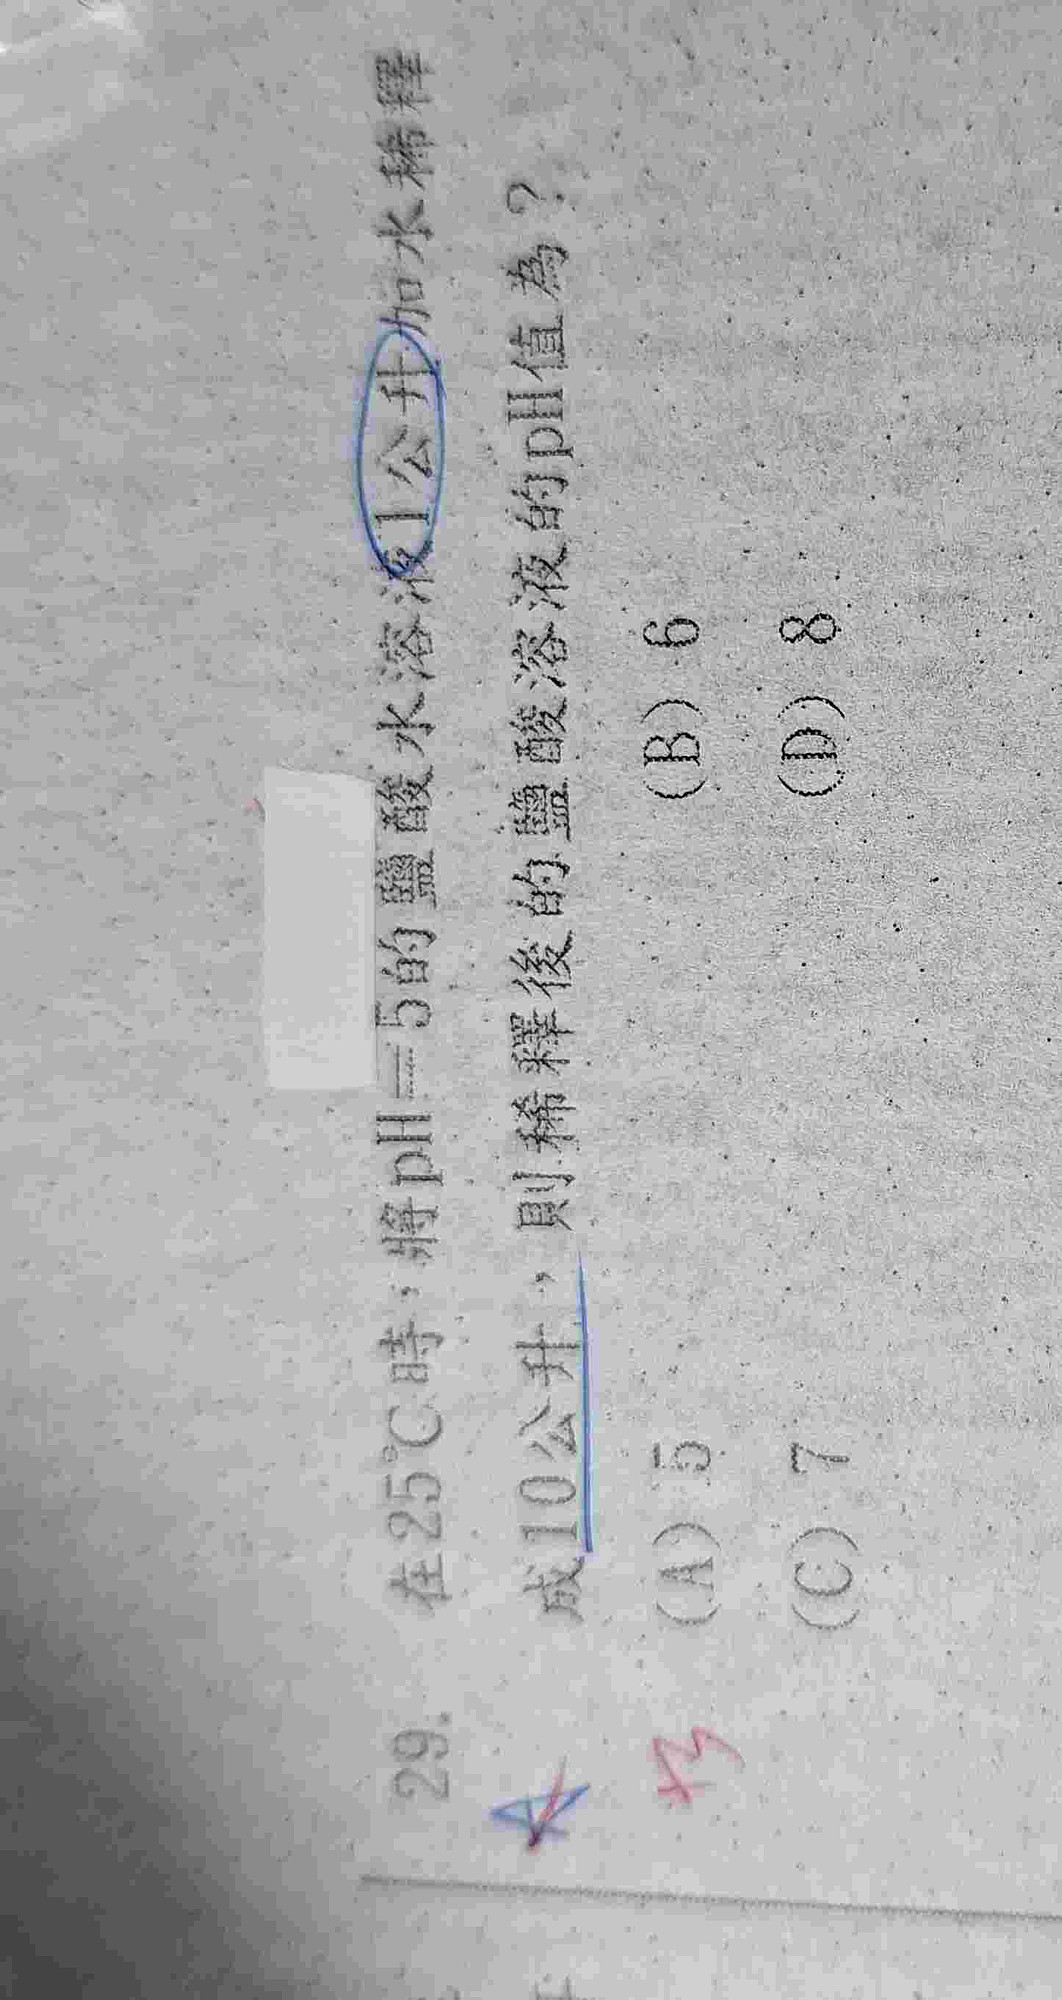 29. 在25℃時，將pH＝5的鹽酸水溶液1公升加水稀釋
成10公升，則稀釋後的鹽酸溶液的pH值為？
(A) 5 (B) 6
(C) 7 (D) 8
A
B